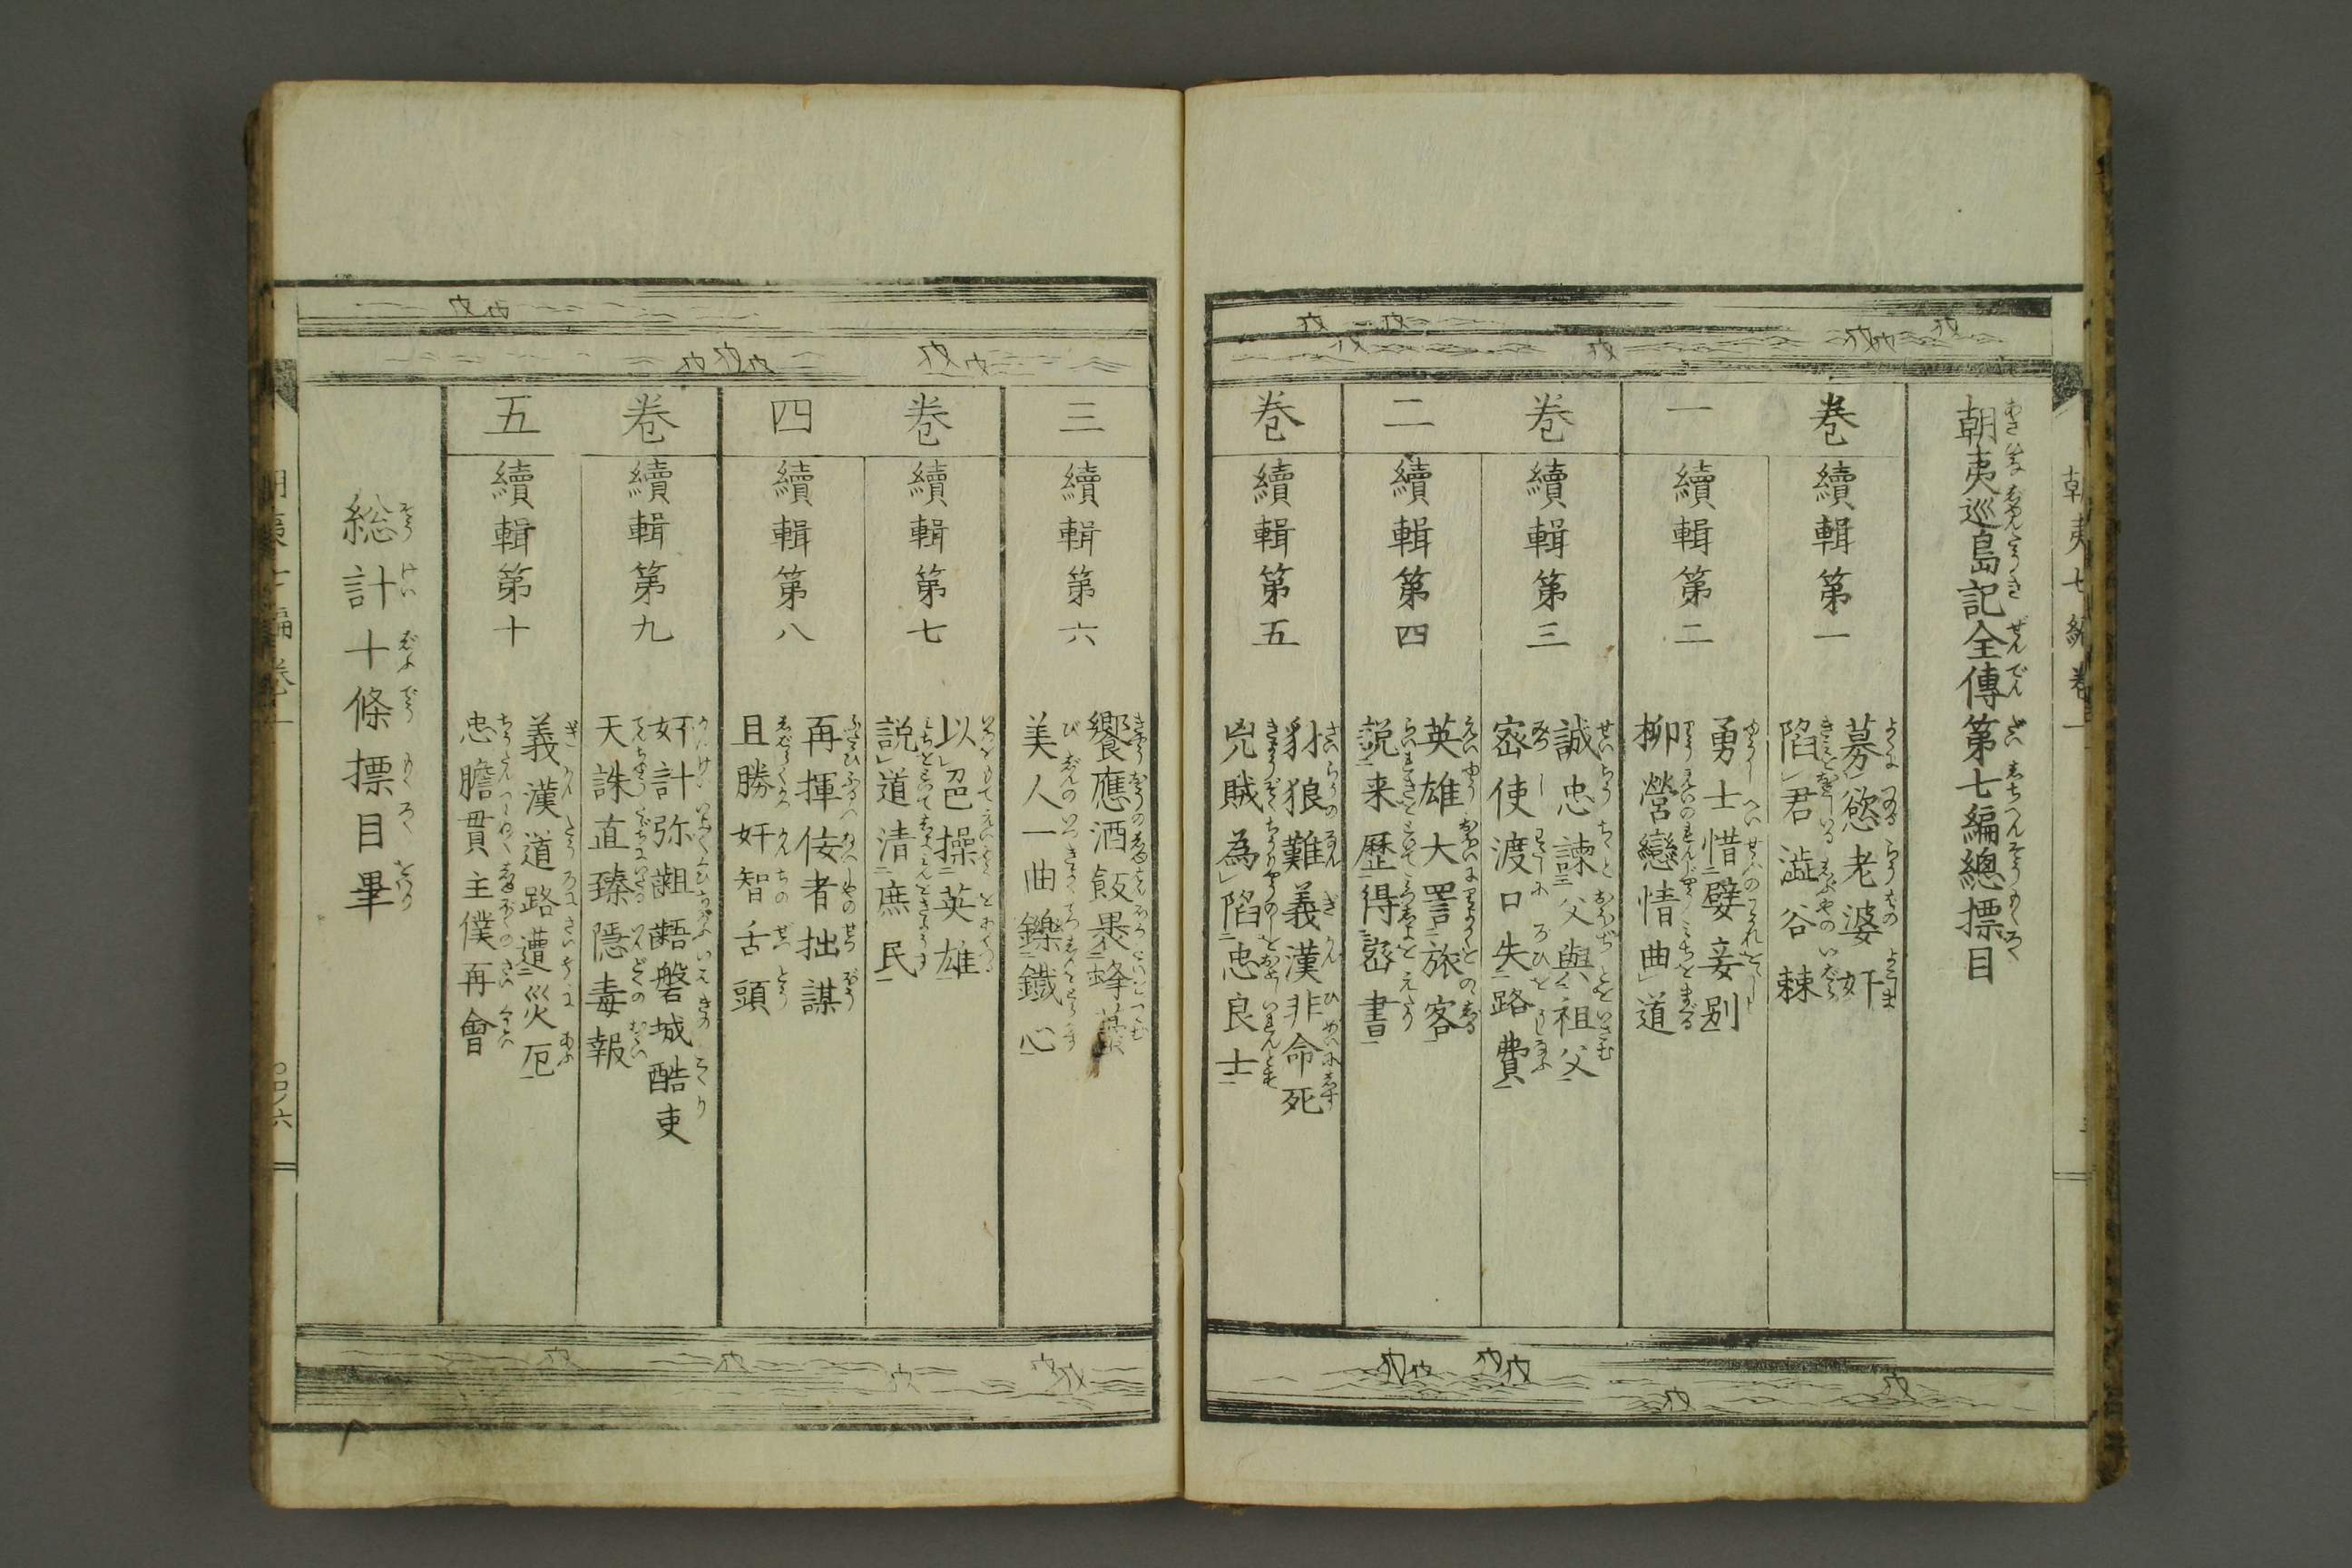 朝夷巡島記全傳第七編總標目
巻一
續輯第一
募慾老婆奸
陷君澁谷棘
續輯第二
勇士惜嬖妾別
柳營戀情曲道
巻二
續輯第三
誠忠諫父與祖父
密使渡口失路費
續輯第四
英雄大詈旅客
説来歴得密書
巻三
續輯第五
豺狼難義漢非命死
兇賊為陷忠良士
續輯第六
饗應酒飯愚蜂
美人一曲鑠鐵心
巻四
續輯第七
以色操英雄
説道清庶民
續輯第八
再揮佞者拙謀
且勝奸智舌頭
巻五
續輯第九
奸計弥齟齬磐城酷吏
天誅直臻隠毒報
續輯第十
義漢道路遭災厄
忠膽貫主僕再會
総計十條標目畢